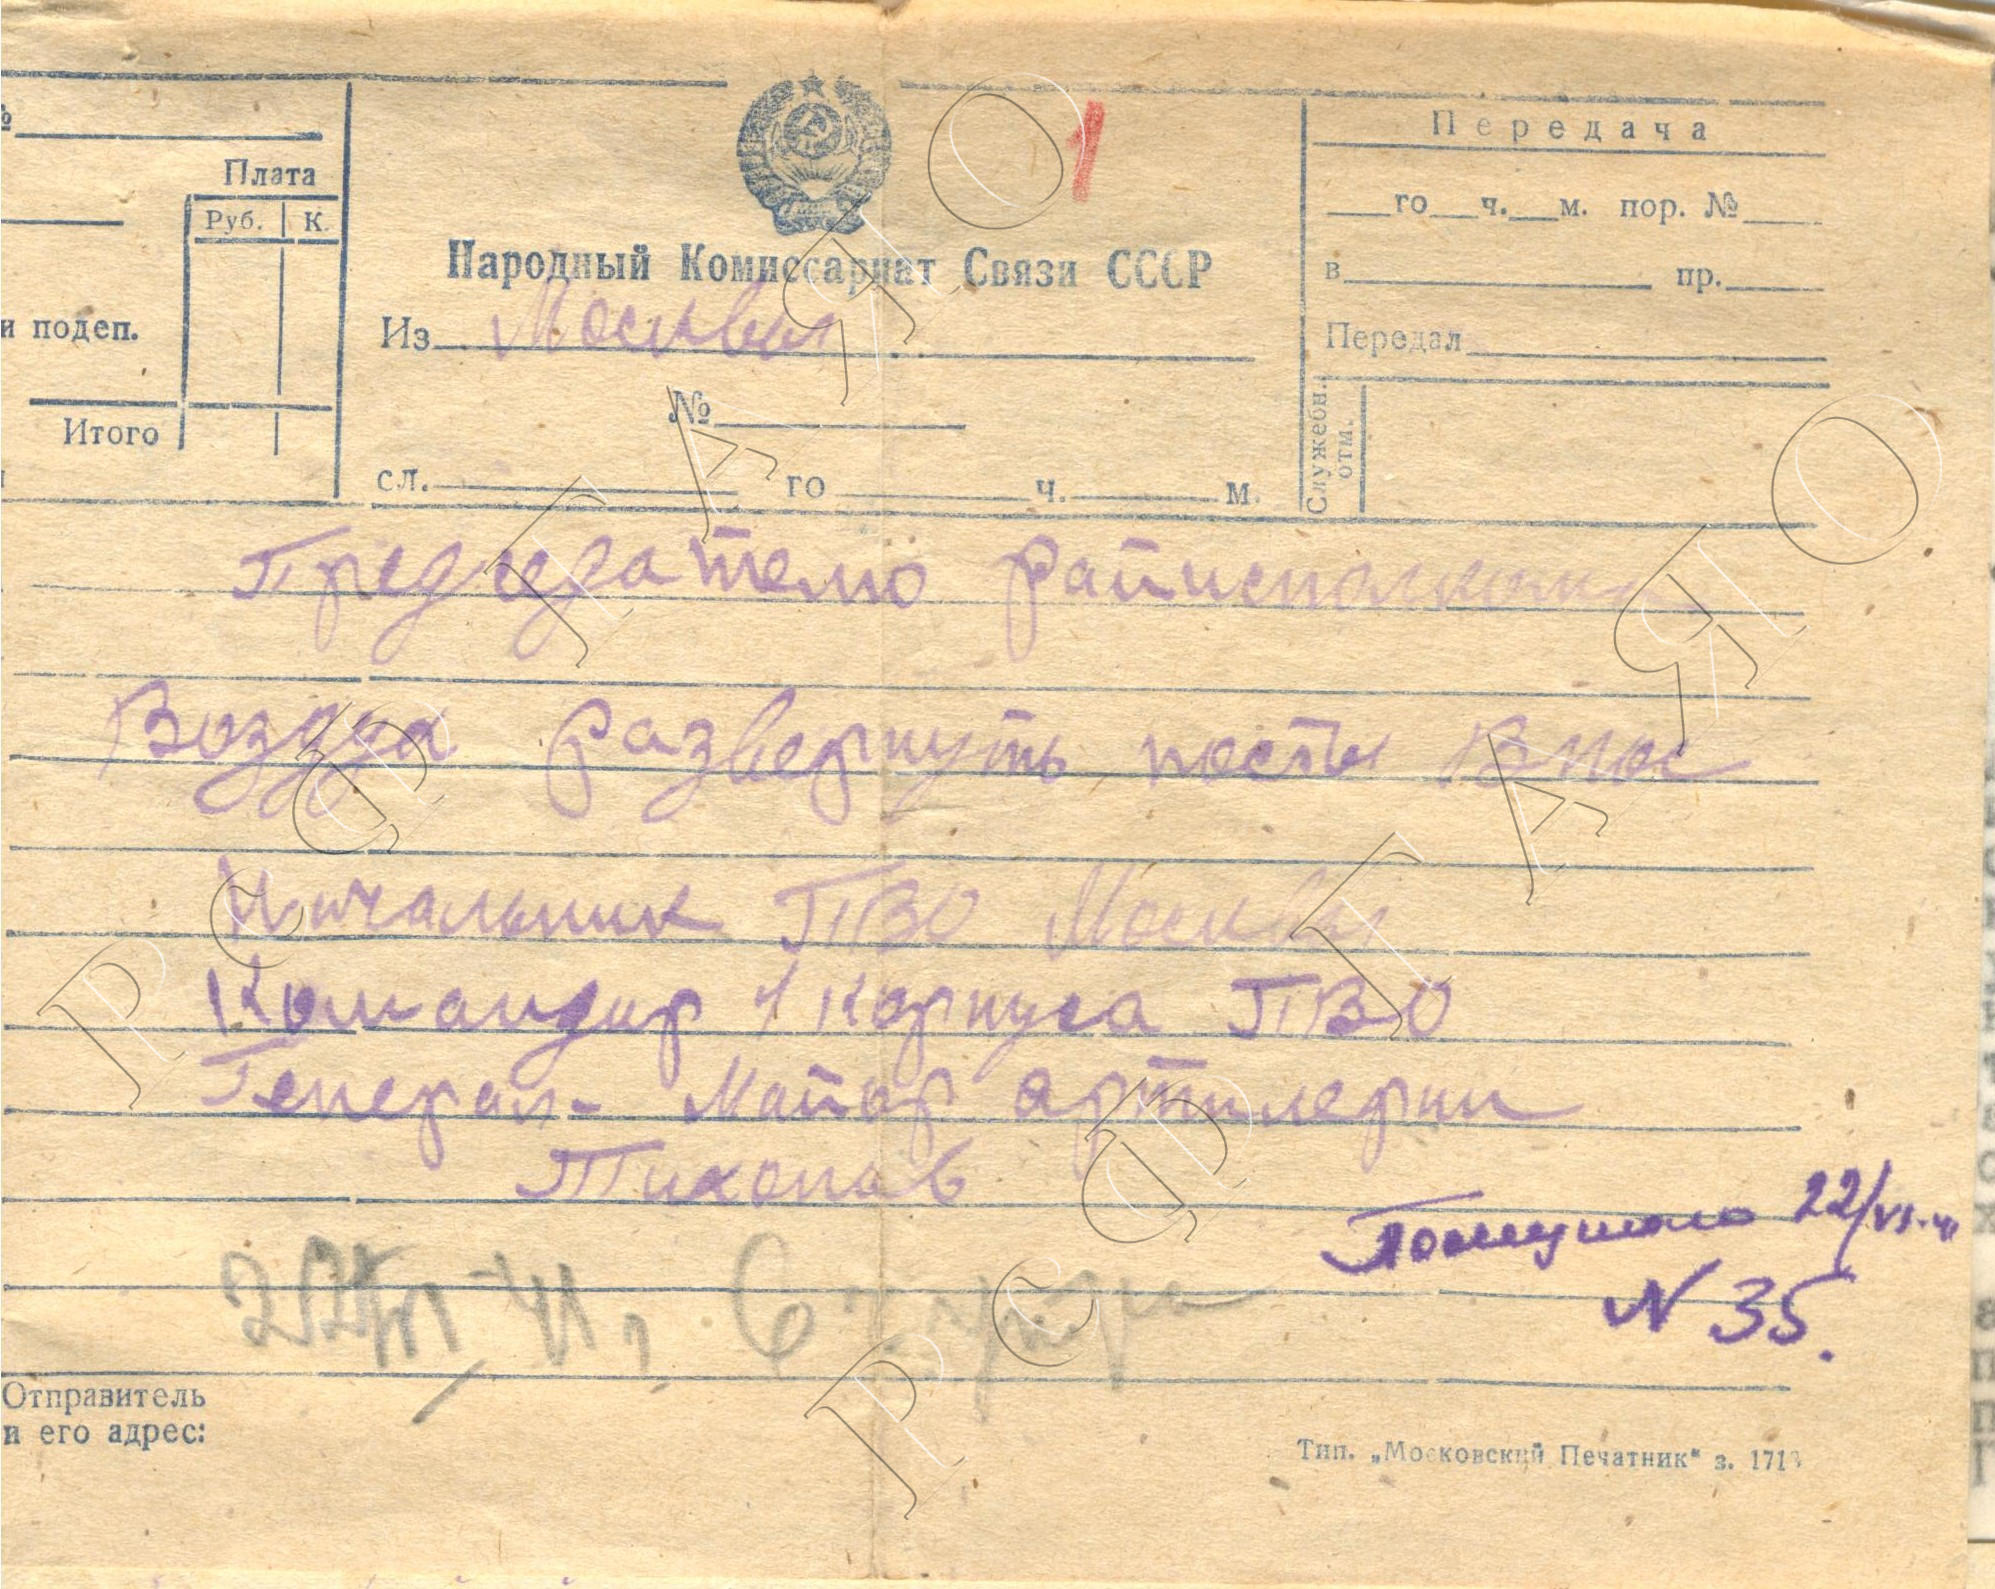 №
Плата
Руб. К.
и подеп.
Итого
1
Народный Комиссариат Связи СССР
Из Москвы
№
сл. го ч. м.
Передача
го ч. м. пор. №
в пр.
Передал
Служебн.
отм.
Председателю райисполкома
Воздух развернуть посты Внос
Начальник ПВО Москвы
Командир 1 корпуса ПВО
Генерал-Майор артилерии
Тихонов
Поступила 22/VI-41
N 35.
22/VI 41, 6
Отправитель
и его адрес:
Тип. „Московский Печатник“ з. 1713
РСФР ГАЯО
РСФР ГАЯО